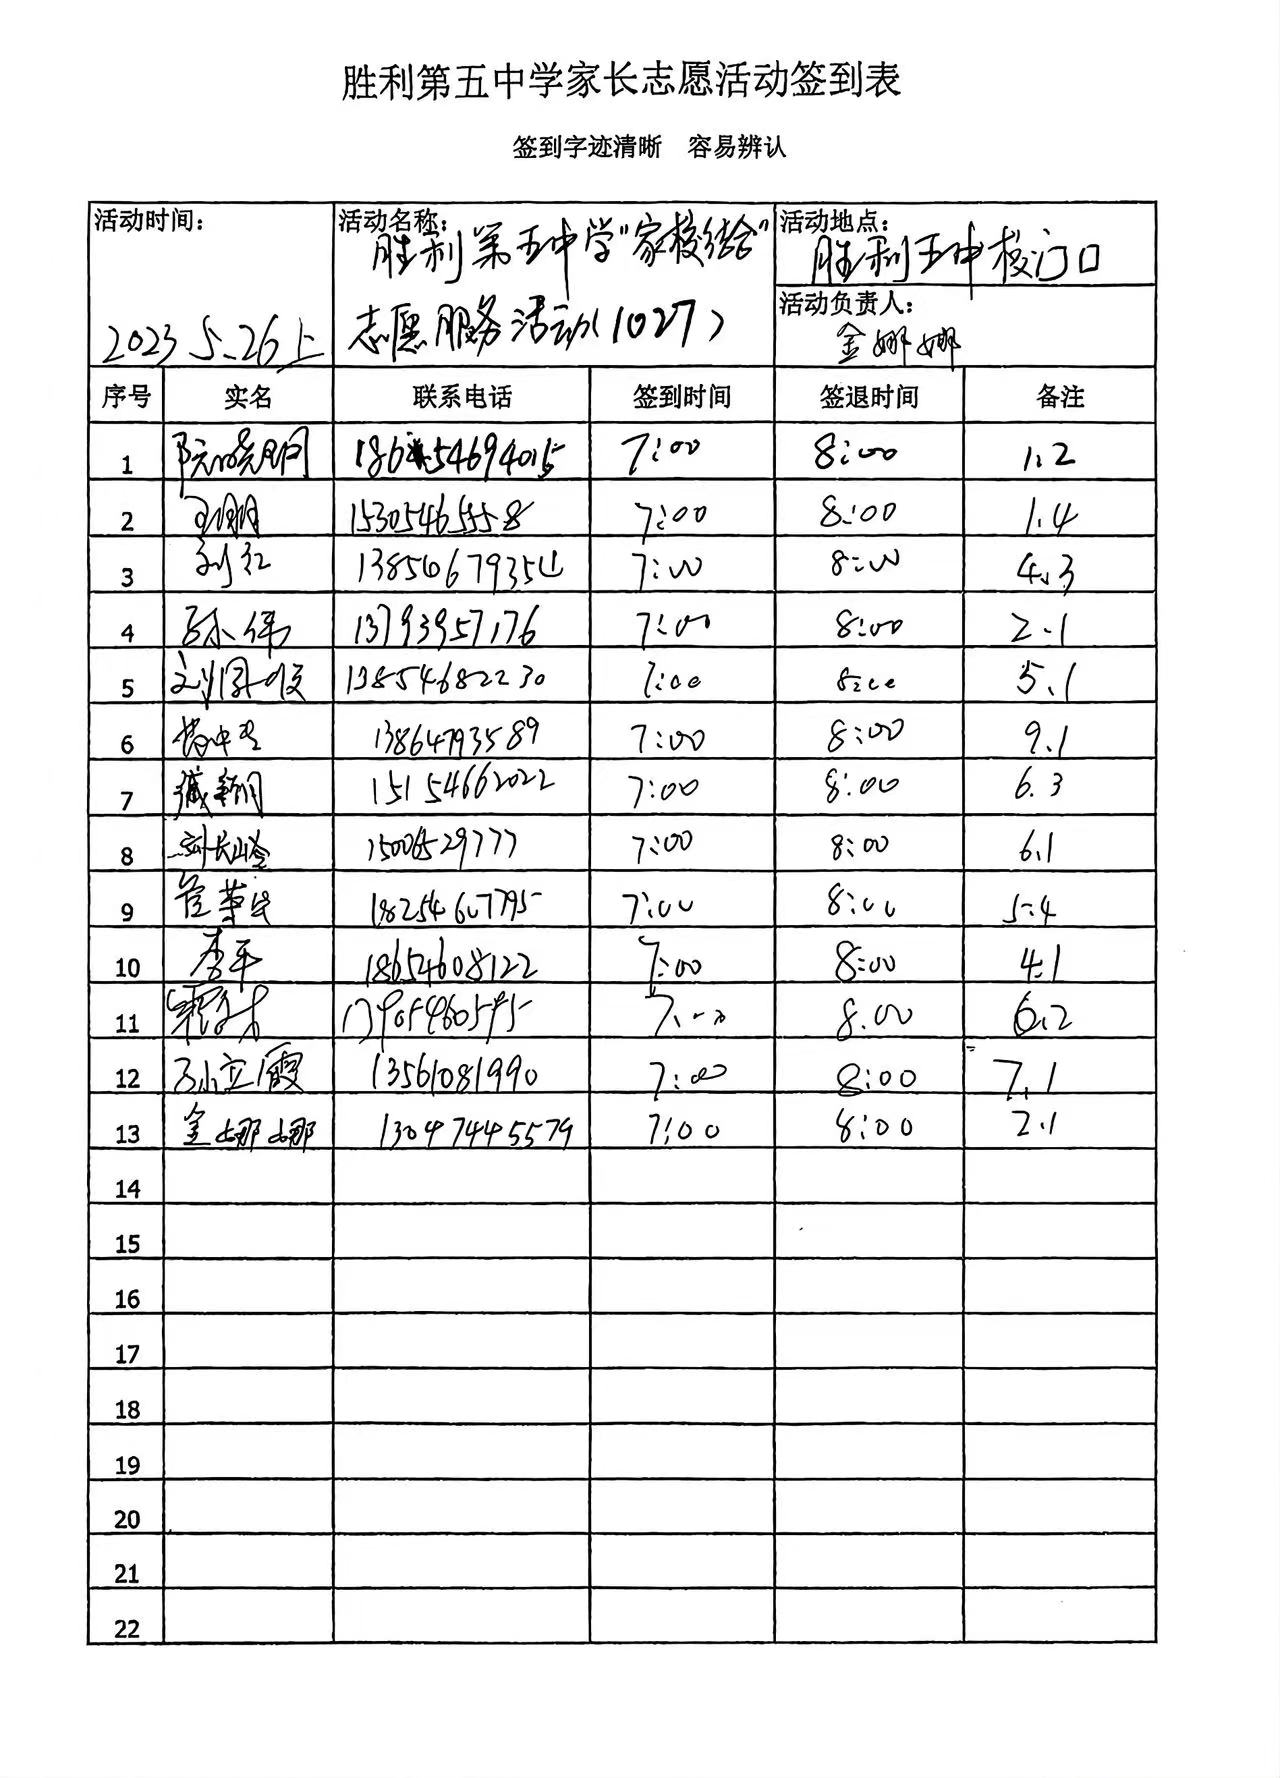 胜利第五中学家长志愿活动签到表
签到字迹清晰 容易辨认
活动时间: 2023 5.26上
活动名称: 胜利第五中学"家校结合"
志愿服务活动(1027)
活动地点: 胜利五中校门口
活动负责人: 金娜娜
序号 实名 联系电话 签到时间 签退时间 备注
1 阮晓明 7:00 8:00 1.2
2 王朋 15305465558 7:00 8:00 1.4
3 刘红 7:00 8:00 4.3
4 孙伟 13793957176 7:00 8:00 2.1
5 13854682230 7:00 8:00 5.1
6 13864793589 7:00 8:00 9.1
7 15154662022 7:00 8:00 6.3
8 15006529777 7:00 8:00 6.1
9 18254607795 7:00 8:00 5.4
10 李平 18654608122 7:00 8:00 4.1
11 8.00 6.2
12 孙立霞 13561081990 7:00 8:00 7.1
13 金娜娜 13047445579 7:00 8:00 2.1
14
15
16
17
18
19
20
21
22